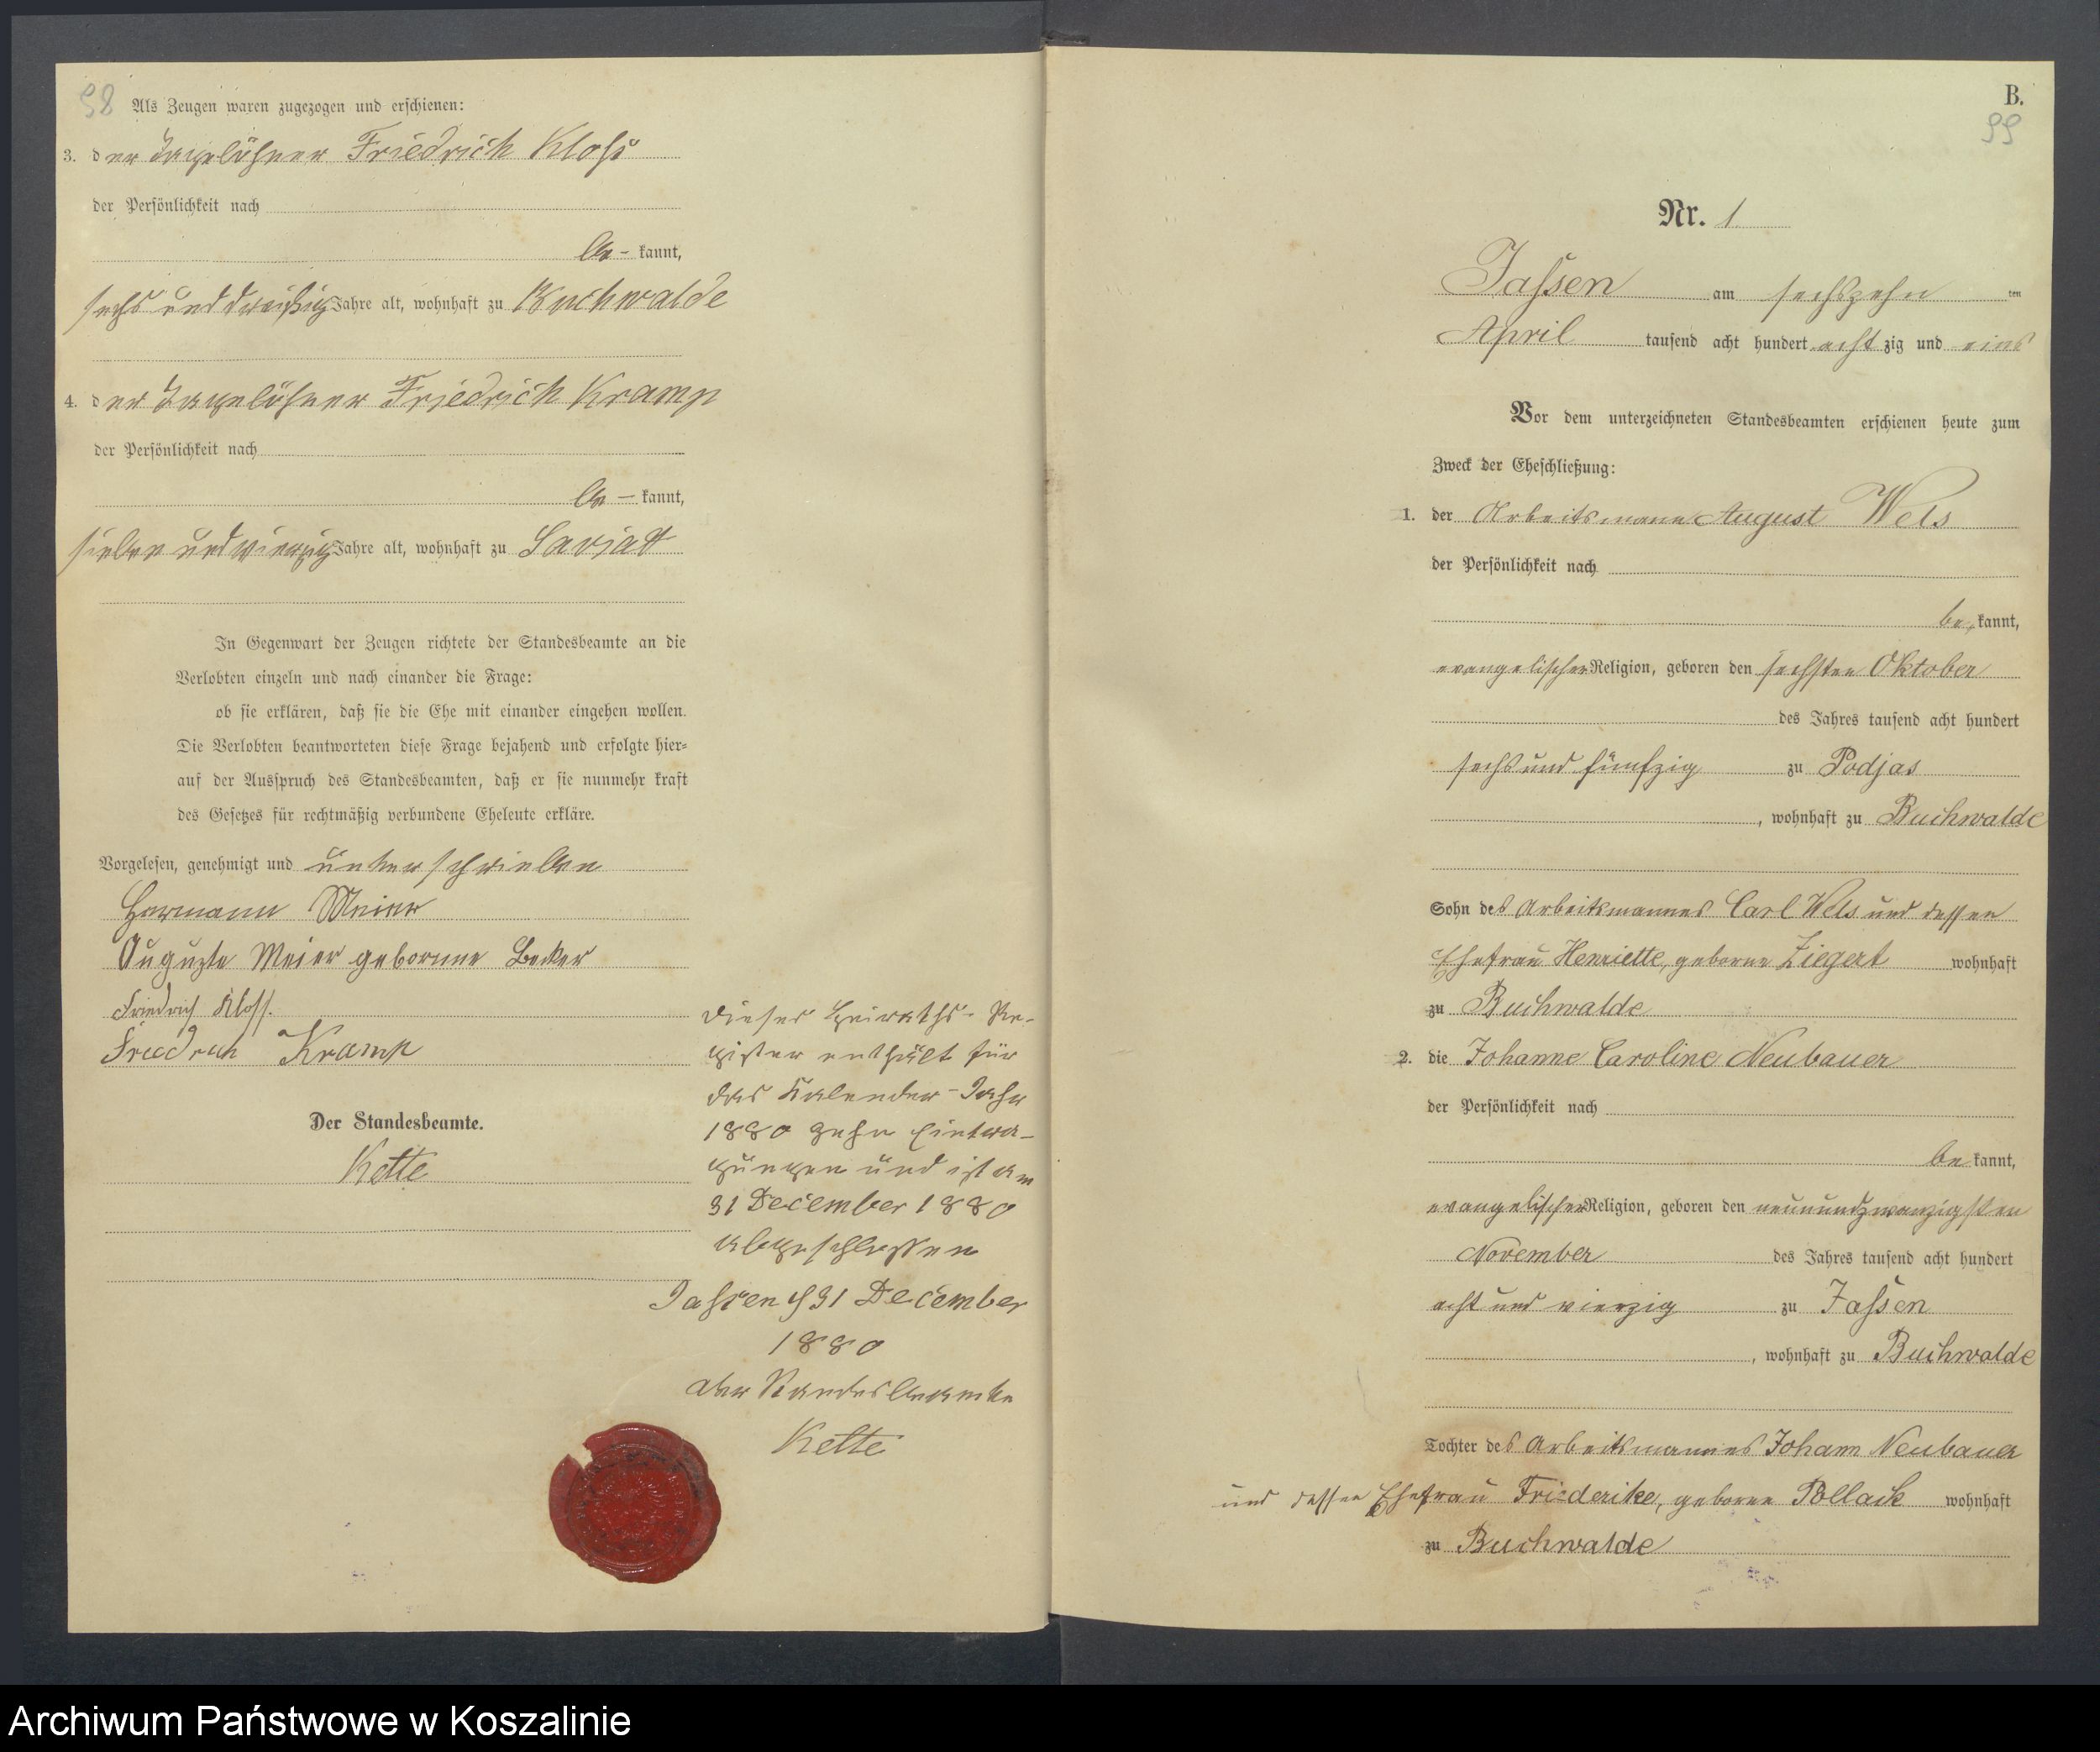 98
Als Zeugen waren zugezogen und erschienen:
3. der Tagelöhner Friedrich Kloß
der Persönlichkeit nach
be- kannt,
sechs und dreißig Jahre alt, wohnhaft zu Buchwalde
4. der Tagelöhner Friedrich Kramp
der Persönlichkeit nach
be- kannt,
sieben und vierzig Jahre alt, wohnhaft zu Saviat
In Gegenwart der Zeugen richtete der Standesbeamte an die
Verlobten einzeln und nach einander die Frage:
ob sie erklären, daß sie die Ehe mit einander eingehen wollen.
Die Verlobten beantworteten diese Frage bejahend und erfolgte hier-
auf der Ausspruch des Standesbeamten, daß er sie nunmehr kraft
des Gesetzes für rechtmäßig verbundene Eheleute erkläre.
Vorgelesen, genehmigt und unterschrieben
Hermann Meier
Auguste Meier geborene Becker
Friedrich Kloss.
Friedrich Kramp
Der Standesbeamte.
Kette
Dieses Heiraths-Re-
gister enthält für
das Kalender-Jahr
1880 zehn Eintra-
gungen und ist am
31 December 1880
abgeschlossen
Jassen 31 December
1880
der Standesbeamte
Kette
B.
99
Nr. 1
Jassen am sechszehn ten
April tausend acht hundert acht zig und eins
Vor dem unterzeichneten Standesbeamten erschienen heute zum
Zweck der Eheschließung:
1. der Arbeitsmann August Wels
der Persönlichkeit nach
be kannt,
evangelischer Religion, geboren den sechsten Oktober
des Jahres tausend acht hundert
sechs und fünfzig zu Podjas
, wohnhaft zu Buchwalde
Sohn des Arbeitsmannes Carl Wels und dessen
Ehefrau Henriette, geborne Ziegert wohnhaft
zu Buchwalde
2. die Johanne Caroline Neubauer
der Persönlichkeit nach
be kannt,
evangelischer Religion, geboren den neunundzwanzigsten
November des Jahres tausend acht hundert
acht und vierzig zu Jassen
, wohnhaft zu Buchwalde
Tochter des Arbeitsmannes Johann Neubauer
und dessen Ehefrau Friederike, geborne Pollack wohnhaft
zu Buchwalde
Archiwum Państwowe w Koszalinie